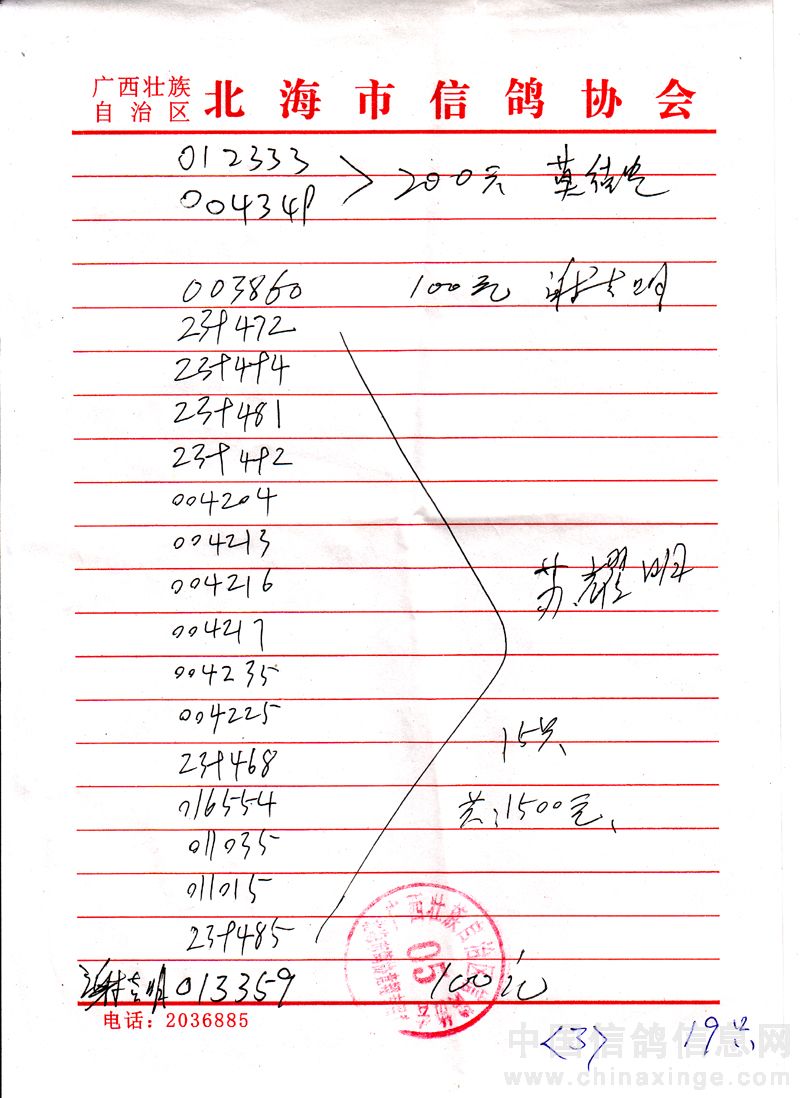 广西壮族
自治区 北海市信鸽协会
012333
004349 200元
003860 100元 谢志明
239472
239494
239481
239492
004204
004213
004216
004217
004235
004225
239468
016554
011035
011015
239485
苏耀明
15只
共:1500元、
谢志明 013359 100元
广西壮族自治区
05
电话:2036885
<3> 19只
中国信鸽信息网
www.chinaxinge.com